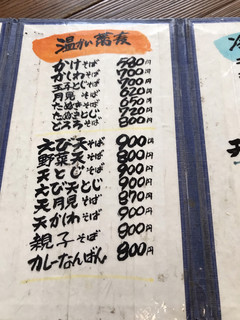 温かい蕎麦
かけそば 580円
かしわそば 700円
玉子とじそば 700円
月見そば 620円
たぬきそば 650円
たぬきとじ 720円
とろろそば 800円
えび天そば 900円
野菜天そば 800円
天とじそば 900円
えび天とじ 900円
天月見そば 870円
天かわそば 900円
親子そば 800円
カレーなんばん 800円
冷
天